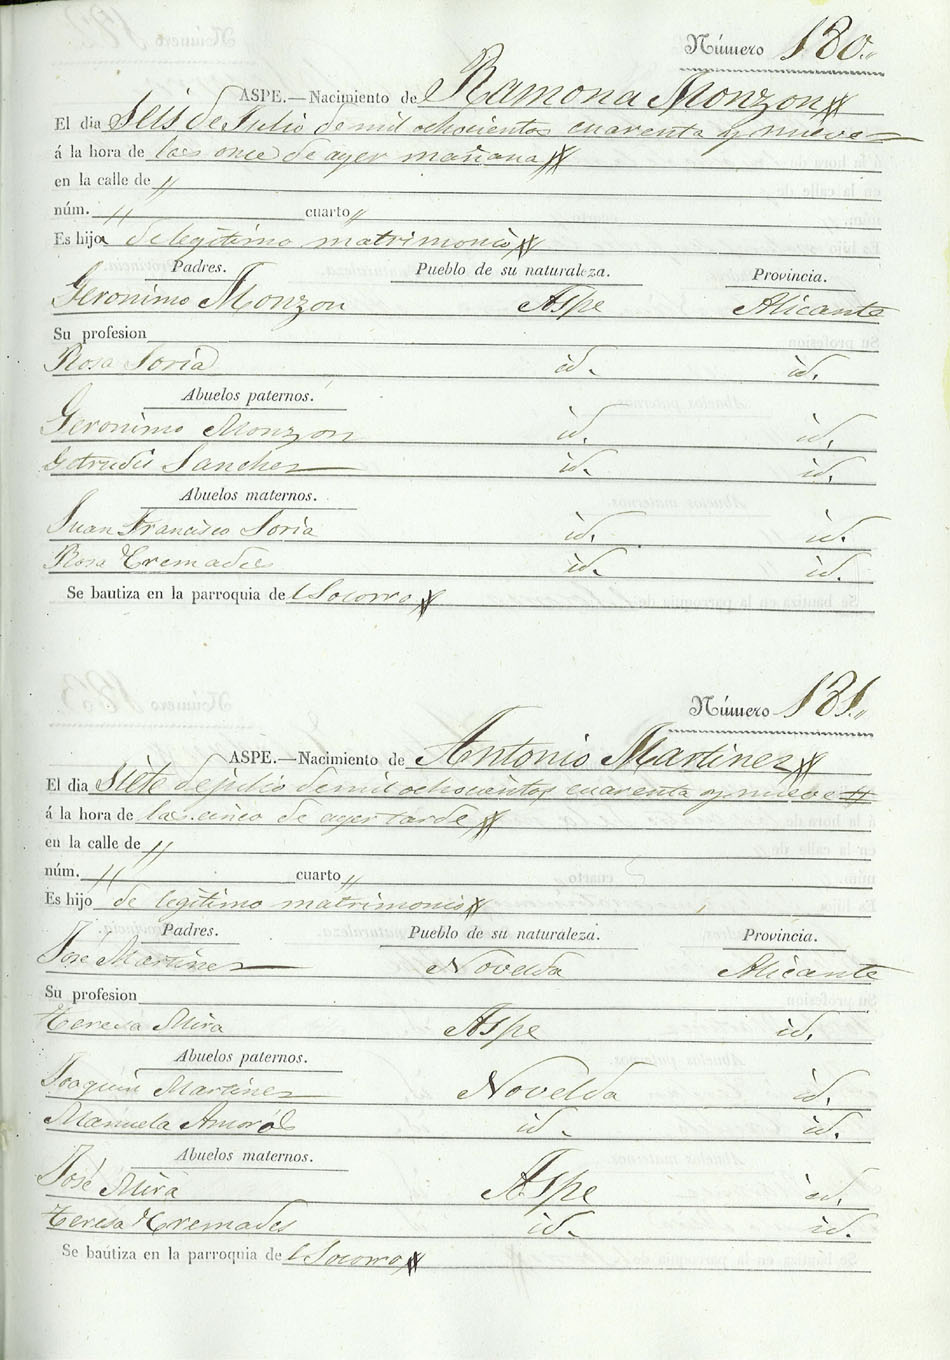 Número 180.
ASPE.—Nacimiento de Ramona Monzon
El dia Seis de Julio de mil ochocientos cuarenta y nueve
á la hora de las once de ayer mañana
en la calle de "
núm. " cuarto "
Es hija de legitimo matrimonio
Padres. Pueblo de su naturaleza. Provincia.
Geronimo Monzon Aspe Alicante
Su profesion
Rosa Soria id. id.
Abuelos paternos.
Geronimo Monzon id. id.
Getrudis Sanchez id. id.
Abuelos maternos.
Juan Francisco Soria id. id.
Rosa Cremades id. id.
Se bautiza en la parroquia de l Socorro
Número 181.
ASPE.—Nacimiento de Antonio Martinez
El dia siete de julio de mil ochocientos cuarenta y nueve
á la hora de las cinco de ayer tarde
en la calle de "
núm. " cuarto "
Es hijo de legitimo matrimonio
Padres. Pueblo de su naturaleza. Provincia.
José Martinez Novelda Alicante
Su profesion
Teresa Mira Aspe id.
Abuelos paternos.
Joaquin Martinez Novelda id.
Manuela Amorós id. id.
Abuelos maternos.
José Mira Aspe id.
Teresa Cremades id. id.
Se bautiza en la parroquia de l Socorro